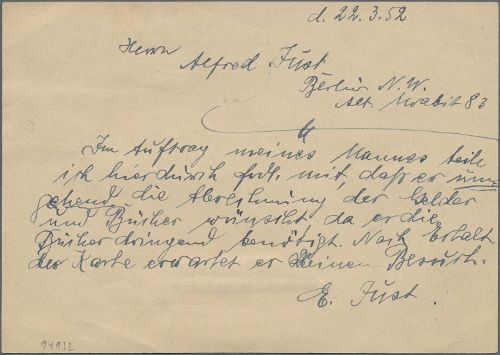 d. 22.3.52
Herrn
Alfred Just
Berlin N.W.
Alt. Moabit 83
Im Auftrag meines Mannes teile
ich hierdurch frdl. mit, daß er umgehend
die Abrechnung der Gelder
und Bücher wünscht da er die
Bücher dringend benötigt. Nach Erhalt
der Karte erwartet er Deinen Besuch.
E. Just.
94932